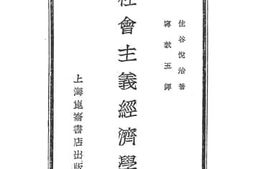 住谷悅治著
寧敦五譯
社會主義經濟學
上海崑崙書店出版